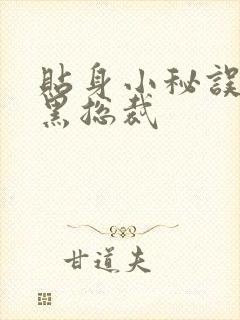 貼身小秘誤
黑总裁
甘道夫